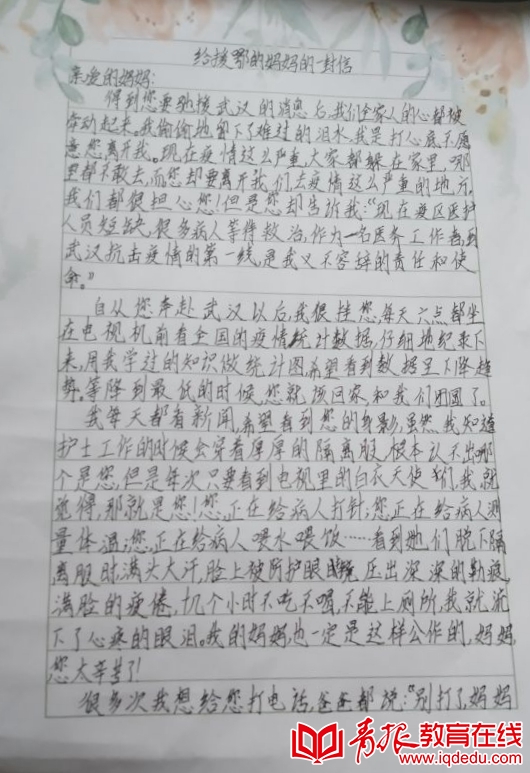 给援鄂的妈妈的一封信
亲爱的妈妈:
得到您要驰援武汉的消息后,我们全家人的心都被
牵动起来。我偷偷地留下了难过的泪水,我是打心底不愿
意您离开我。现在疫情这么严重,大家都躲在家里,哪
里都不敢去,而您却要离开我们去疫情这么严重的地方,
我们都很担心您!但是您却告诉我:“现在疫区医护
人员短缺,很多病人等待救治,作为一名医务工作者,到
武汉抗击疫情的第一线,是我义不容辞的责任和使
命。”
自从您奔赴武汉以后,我很挂您,每天六点都坐
在电视机前看全国的疫情统计数据,仔细地纪录下
来,用我学过的知识做统计图,希望看到数据呈下降趋
势。等降到最低的时候,您就该回家,和我们团圆了。
我每天都看新闻,希望看到您的身影,虽然,我知道
护士工作的时候会穿着厚厚的隔离服,根本认不出哪
个是您,但是每次只要看到电视里的白衣天使们,我就
觉得,那就是您!您正在给病人打针;您正在给病人测
量体温;您正在给病人喂水喂饭……看到她们脱下隔
离服时,满头大汗,脸上被防护眼镜压出深深的勒痕,
满脸的疲倦,几个小时不吃不喝,不能上厕所,我就流
下了心疼的眼泪。我的妈妈,也一定是这样工作的,妈妈,
您太辛苦了!
很多次我想给您打电话,爸爸都说:“别打了,妈妈
青报教育在线
www.iqdedu.com